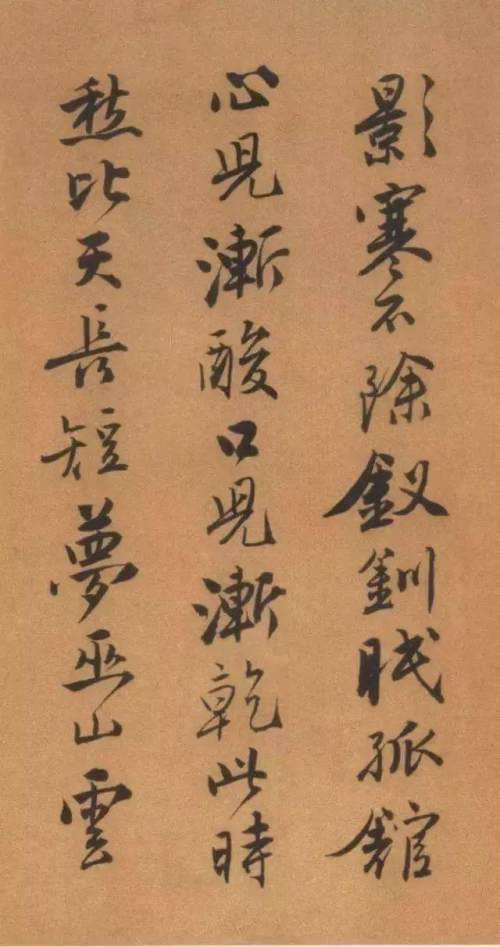 影寒不除釵釧眠孤舘
心兒漸酸口兒漸乾此時
愁比天長短夢巫山雲